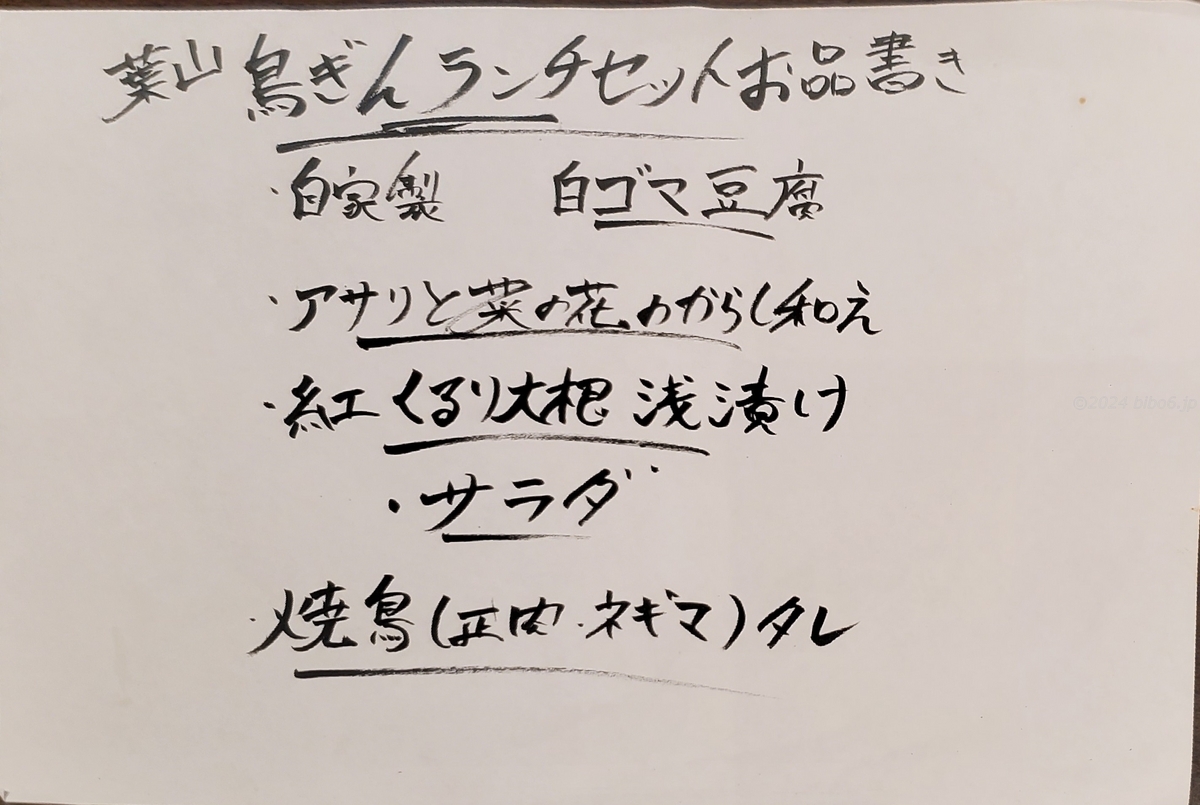 葉山 鳥ぎんランチセットお品書き
・自家製 白ゴマ豆腐
・アサリと菜の花のからし和え
・紅くるり大根 浅漬け
・サラダ
・焼鳥(正肉・ネギマ)タレ
©2024 bibo6.jp